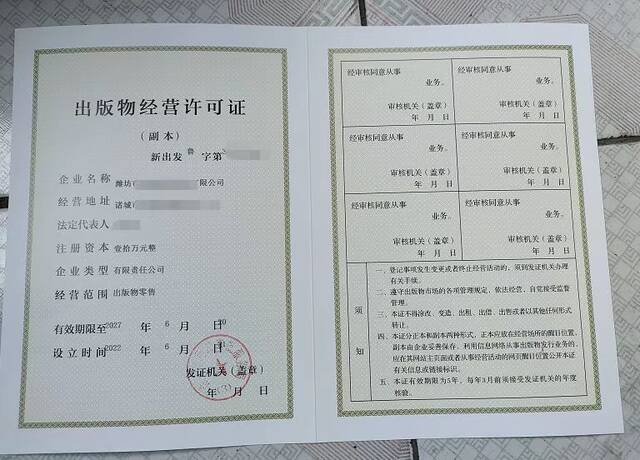 出版物经营许可证
（副本）
新出发 鲁 字第
企业名称 潍坊 有限公司
经营地址 诸城
法定代表人
注册资本 壹拾万元整
企业类型 有限责任公司
经营范围 出版物零售
有效期限至2027 年 6 月 日
设立时间2022 年 6 月 日
发证机关（盖章）
年 月 日
经审核同意从事
业务。
审核机关（盖章）
年 月 日
经审核同意从事
业务。
审核机关（盖章）
年 月 日
经审核同意从事
业务。
审核机关（盖章）
年 月 日
经审核同意从事
业务。
审核机关（盖章）
年 月 日
经审核同意从事
业务。
审核机关（盖章）
年 月 日
经审核同意从事
业务。
审核机关（盖章）
年 月 日
须知
一、登记事项发生变更或者终止经营活动的，须到发证机关办理
有关手续。
二、遵守出版物市场的各项管理规定，依法经营、自觉接受监督
管理。
三、本证不得涂改、变造、出租、出借、出售或者以其他任何形式
转让。
四、本证分正本和副本两种形式，正本应放在经营场所的醒目位置，
副本由企业妥善保存。利用信息网络从事出版物发行业务的，
应在其网站主页面或者从事经营活动的网页醒目位置公开本证
有关信息或链接标识。
五、本证有效期限为5年，每年3月前须接受发证机关的年度
核验。